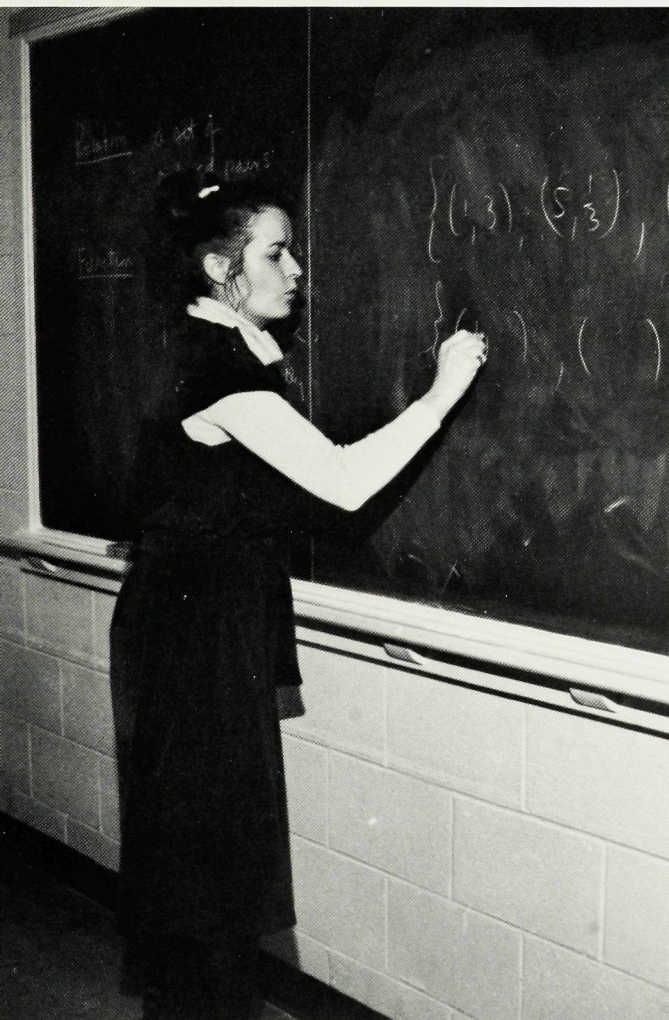 Relation a set of
pairs
Function
{(1,3), (5,1/3),
{( ), ( )